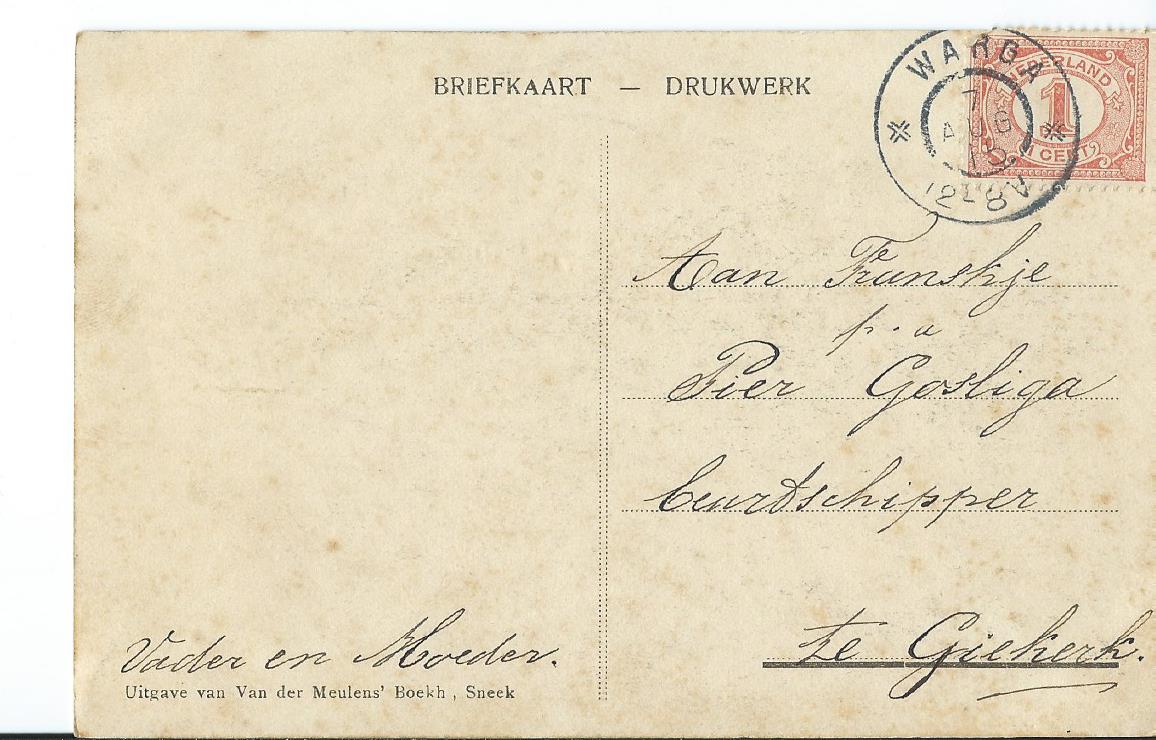 BRIEFKAART — DRUKWERK
WARGA
7
AUG
15
12-8V
NEDERLAND
1
1 CENT
Aan Franskje
p. a
Pier Gosliga
beurtschipper
te Giekerk.
Vader en Moeder.
Uitgave van Van der Meulens' Boekh, Sneek